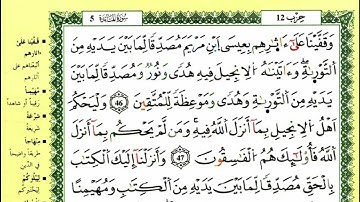 حِزْبُ 12
سُورَةُ الْمَائِدَة 5
وَقَفَّيْنَا عَلَىٰ ءَاثَٰرِهِم بِعِيسَى ابْنِ مَرْيَمَ مُصَدِّقًا لِّمَا بَيْنَ يَدَيْهِ مِنَ
التَّوْرَىٰةِ وَءَاتَيْنَٰهُ الْإِنجِيلَ فِيهِ هُدًى وَنُورٌ وَمُصَدِّقًا لِّمَا بَيْنَ
يَدَيْهِ مِنَ التَّوْرَىٰةِ وَهُدًى وَمَوْعِظَةً لِّلْمُتَّقِينَ 46 وَلْيَحْكُمْ
أَهْلُ الْإِنجِيلِ بِمَا أَنزَلَ اللَّهُ فِيهِ وَمَن لَّمْ يَحْكُم بِمَا أَنزَلَ
اللَّهُ فَأُوْلَٰئِكَ هُمُ الْفَٰسِقُونَ 47 وَأَنزَلْنَا إِلَيْكَ الْكِتَٰبَ
بِالْحَقِّ مُصَدِّقًا لِّمَا بَيْنَ يَدَيْهِ مِنَ الْكِتَٰبِ وَمُهَيْمِنًا
قَفَّيْنَا عَلَىٰ
آثارهم
مُهَيْمِنًا
شِرْعَةً
شريعة
مِنْهَاجًا
لِيَبْلُوَكُمْ